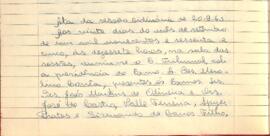 Ata da sessão ordinária de 20.9.65
Aos vinte dias do mês de setembro
de mil novecentos e sessenta e
cinco, às dezessete horas, na sala das
sessões, reuniu-se o E. Tribunal, sob
a presidência do Exmo. Sr. Des.
Corrêa, presentes os Exmos. Srs.
Des. João Martins de Oliveira e Des.
José de Castro, Valle Ferreira,
Prates e Sigismundo de Barros Filho,